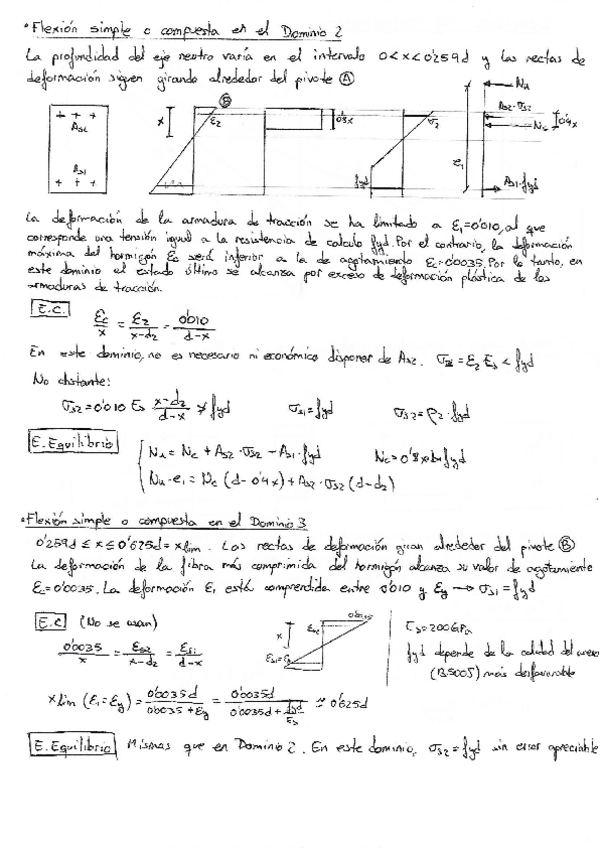 • Flexión simple o compuesta en el Dominio 2
La profundidad del eje neutro varía en el intervalo 0<x<0'259d y las rectas de
deformación siguen girando alrededor del pivote Ⓐ
B
Nu
As2·σs2
Nc
0'4x
x
ε2
0'8x
σ2
e1
As2
As1
fyd
As1·fyd
La deformación de la armadura de tracción se ha limitado a ε1=0'010, al que
corresponde una tensión igual a la resistencia de calculo fyd. Por el contrario, la deformación
máxima del hormigón εc será inferior a la de agotamiento εc=0'0035. Por lo tanto, en
este dominio el estado último se alcanza por exceso de deformación plástica de las
armaduras de tracción.
E.C.
εc/x = ε2/(x-d2) = 0'010/(d-x)
En este dominio, no es necesario ni económico disponer de As2. = ε2 Es < fyd
No obstante:
σs2=0'010 Es (x-d2)/(d-x) ≯ fyd σs1=fyd σs2=ρ2·fyd
E. Equilibrio
Nu = Nc + As2·σs2 - As1·fyd
Nu·e1 = Nc (d-0'4x) + As2·σs2 (d-d2)
• Flexión simple o compuesta en el Dominio 3
0'259d ≤ x ≤ 0'625d = xlim. Las rectas de deformación giran alrededor del pivote Ⓑ
La deformación de la fibra más comprimida del hormigón alcanza su valor de agotamiento
εc=0'0035. La deformación ε1 está comprendida entre 0'010 y εy → σs1=fyd
E.C (No se usan)
0'0035/x = εs2/(x-d2) = εs1/(d-x)
x
0'0035
Es=200GPa
fyd depende de la calidad del acero
(B500S) más desfavorable
xlim (ε1=εy) = 0'0035d/(0'0035+εy) = 0'0035d/(0'0035d+fyd/Es) ≃ 0'625d
E. Equilibrio Mismas que en Dominio 2. En este dominio, σs2=fyd sin error apreciable